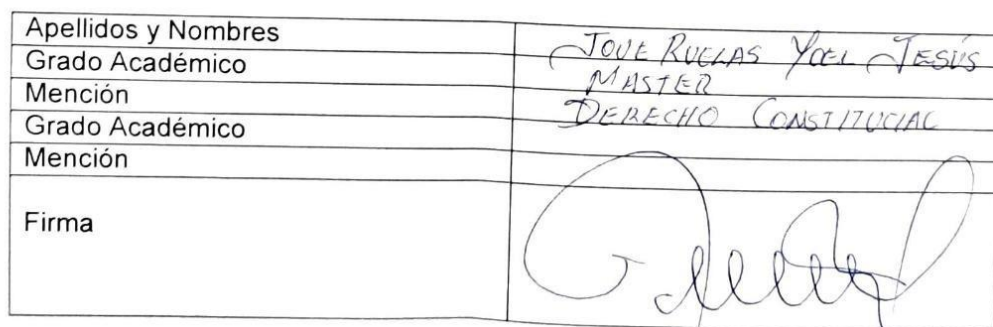 Apellidos y Nombres JOVE RUELAS YOEL JESÚS
Grado Académico MASTER
Mención DERECHO CONSTITUCIAL
Grado Académico
Mención
Firma